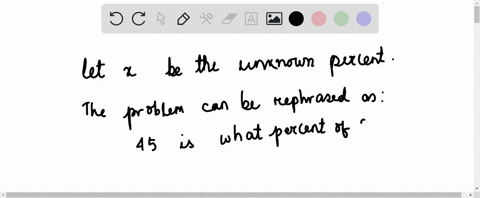 let x be the unknown percent.
The problem can be rephrased as:
45 is what percent of